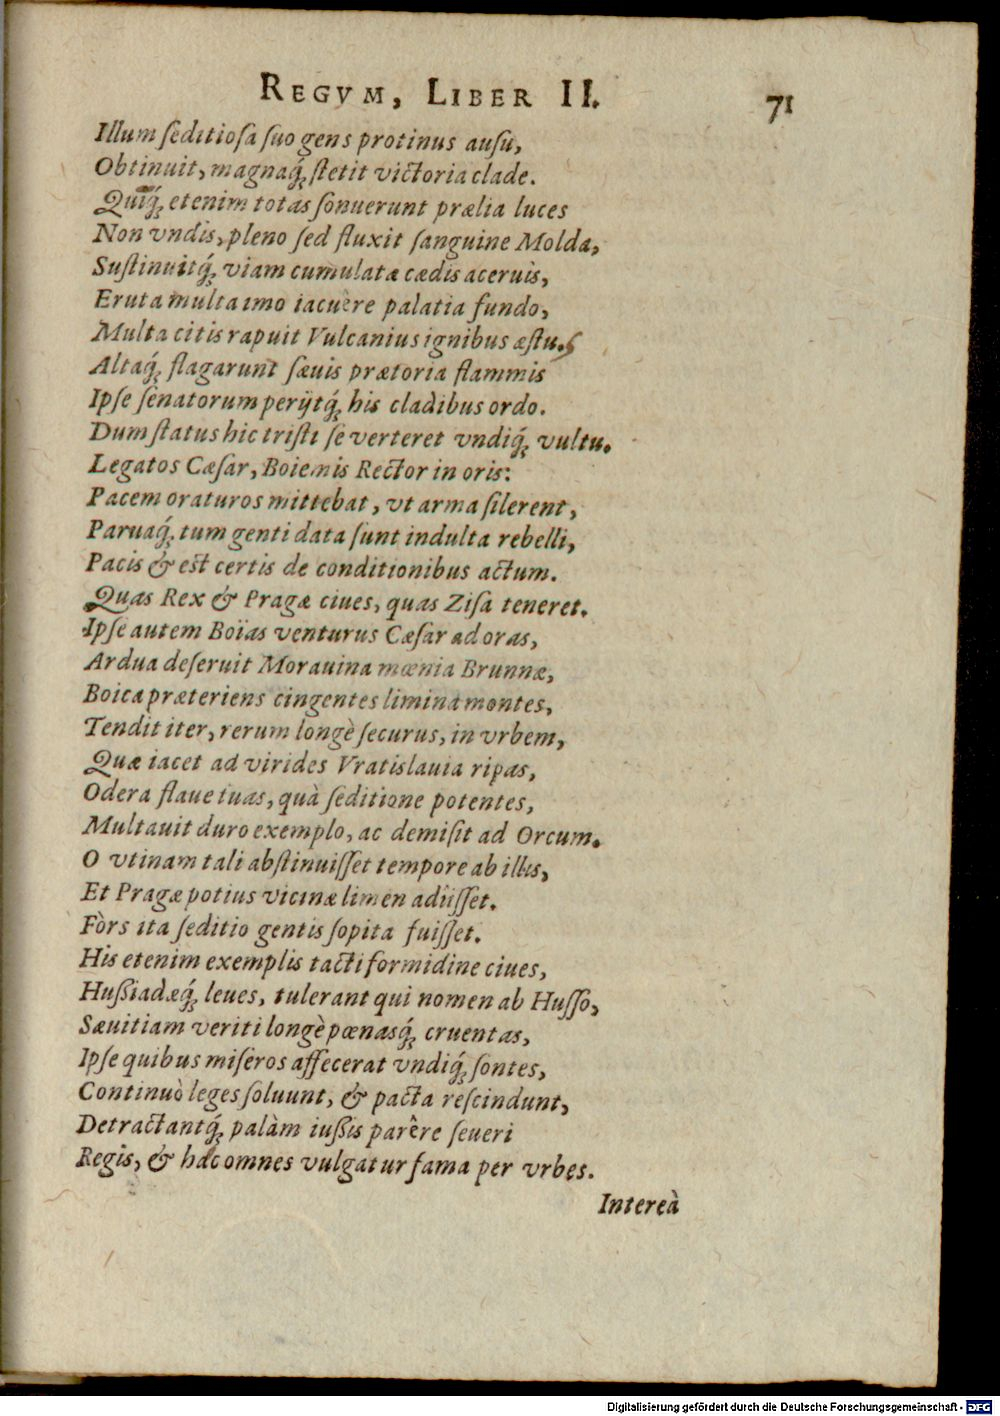 REGVM, LIBER II. 71
Illum ſeditioſa ſuo gens protinus auſu,
Obtinuit, magnaq́; ſtetit victoria clade.
Quiq́; etenim totas ſonuerunt prælia luces
Non vndis, pleno ſed fluxit ſanguine Molda,
Suſtinuitq́; viam cumulatæ cædis aceruis,
Eruta multa imo iacuêre palatia fundo,
Multa citis rapuit Vulcanius ignibus æſtus
Altaq́; flagarunt ſæuis prætoria flammis
Ipſe ſenatorum perijtq́; his cladibus ordo.
Dum ſtatus hic triſti ſe verteret vndiq́; vultu.
Legatos Cæſar, Boiemis Rector in oris:
Pacem oraturos mittebat, vt arma ſilerent,
Paruaq́; tum genti data ſunt indulta rebelli,
Pacis & eſt certis de conditionibus actum.
Quas Rex & Pragæ ciues, quas Ziſa teneret.
Ipſe autem Boïas venturus Cæſar ad oras,
Ardua deſeruit Morauina mœnia Brunnæ,
Boica præteriens cingentes limina montes,
Tendit iter, rerum longè ſecurus, in vrbem,
Quæ iacet ad virides Vratislauia ripas,
Odera flaue tuas, quà ſeditione potentes,
Multauit duro exemplo, ac demiſit ad Orcum.
O vtinam tali abſtinuiſſet tempore ab illis,
Et Pragæ potius vicinæ limen adiiſſet.
Fòrs ita ſeditio gentis ſopita fuiſſet.
His etenim exemplis tacti formidine ciues,
Hußiadæq́; leues, tulerant qui nomen ab Huſſo,
Sæuitiam veriti longè pœnasq́; cruentas,
Ipſe quibus miſeros affecerat vndiq́; ſontes,
Continuò leges ſoluunt, & pacta reſcindunt,
Detractantq́; palàm iußis parêre ſeueri
Regis, & hæc omnes vulgatur fama per vrbes.
Intereà
Digitalisierung gefördert durch die Deutsche Forschungsgemeinschaft - DFG